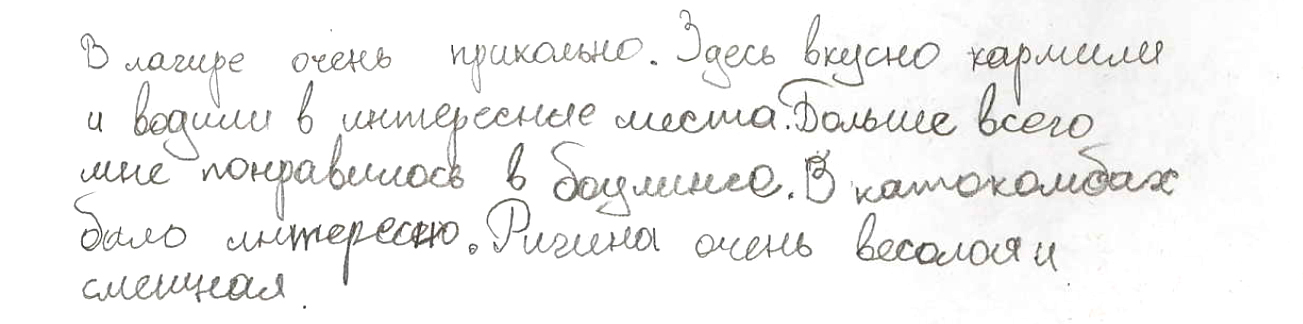 В лагире очень прикольно. Здесь вкусно кармили
и водили в интересные места. Больше всего
мне понравилось в боулинге. В катокомбах
было интересно. Ригина очень весолая и
смешная.